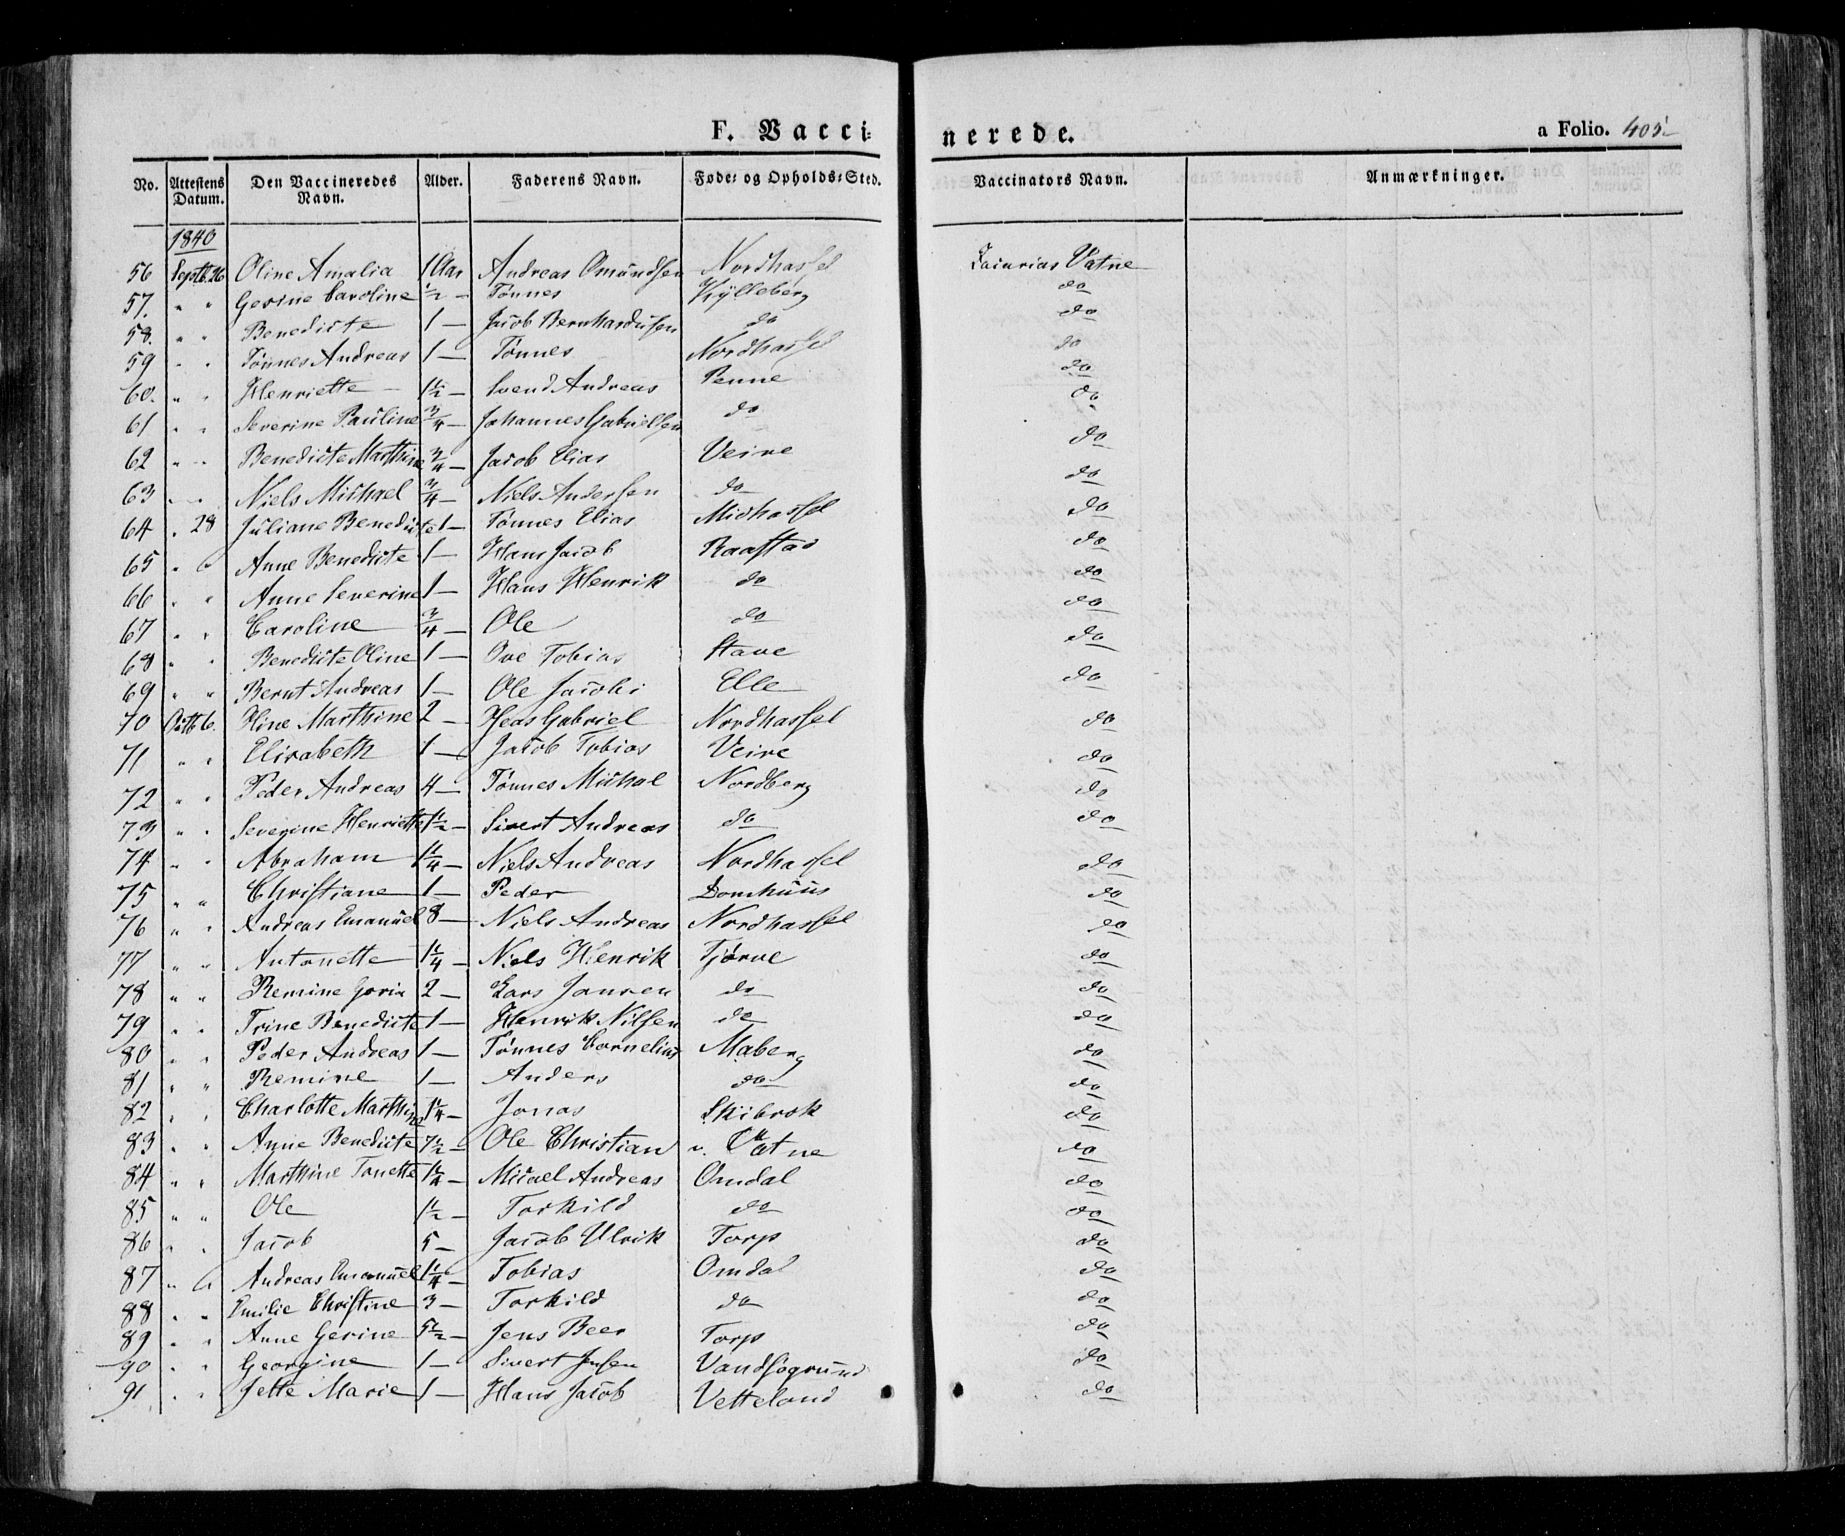 F. Vacci= nerede. a Folio. 405.
No. Attestens Datum. Den Vaccineredes Navn. Alder. Faderens Navn. Føde= og Opholds=Sted. Vaccinators Navn. Anmærkninger.
1840
56 Septb. 26 Oline Amalia 1 Aar Andreas Omundsen Nordhassel Zacarias Vatne
57. " " Gesine Caroline ½ — Tønnes Kylleberg do
58. " " Benedicte 1 — Jacob Bernhardusen do do
59 " " Tønnes Andreas 1 — Tønnes Nordhassel do
60. " " Henriette 1½ — Svend Andreas Penne do
61 " " Severine Pauline ¾ — Johannes Gabrielsen do do
62 " " Benedicte Marthine ¾ — Jacob Elias Veire do
63 " " Niels Michael ¾ — Niels Andersen do do
64 " 28 Juliane Benedicte 1 — Tønnes Elias Midhassel do
65 " " Anne Benedicte 1 — Hans Jacob Raastad do
66 " " Anne Severine 1 — Hans Henrik do do
67 " " Caroline ¾ — Ole do do
68 " " Benedicte Oline 1 — Ove Tobias Stave do
69 " " Bernt Andreas 1 — Ole Jacobi Elle do
70 Octb 6. Oline Marthine 2 — Jeas Gabriel Nordhassel do
71 " " Elisabeth 1 — Jacob Tobias Veire do
72 " " Peder Andreas 4 — Tønnes Michal Nordberg do
73 " " Severine Henriette 1½ — Sivert Andreas do do
74 " " Abraham 1¼ — Niels Andreas Nordhassel do
75 " " Christiane 1 — Peder Domhuus do
76 " " Andreas Emanuel 8 — Niels Andreas Nordhassel do
77 " " Antonette 1¼ — Niels Henrik Tjørve do
78 " " Remine Goria 2 — Lars Jansen do do
79 " " Trine Benedicte 1 — Henrik Nilsen do do
80 " " Peder Andreas 1 — Tønnes Cornelius Maberg do
81 " " Remine 1 — Anders do do
82 " " Charlotte Marthine 1¼ — Jonas Skibrok do
83 " " Anne Benedicte 7½ — Ole Christian v. Vatne do
84 " " Marthine Tonette 1¼ — Micael Andreas Omdal do
85 " " Ole 1½ — Torkild do do
86 " " Jacob 5 — Jacob Ulrik Torp do
87 " " Andreas Emanuel 1¼ — Tobias Omdal do
88 " " Emilie Christine 3 — Torkild do do
89 " " Anne Gesine 5½ — Jens Beer Torp do
90 " " Georgine 1 — Sivert Jensen Vandsøgrund do
91 " " Jette Marie 1 — Hans Jacob Vetteland do